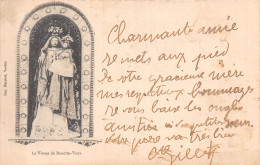 Charmante amie
je mets aux pied
de votre gracieuse mère
mes respectueux hommages
je vous baise les ongles
amitiés
votre père va très bien
La Vierge de Bonette-Vaux